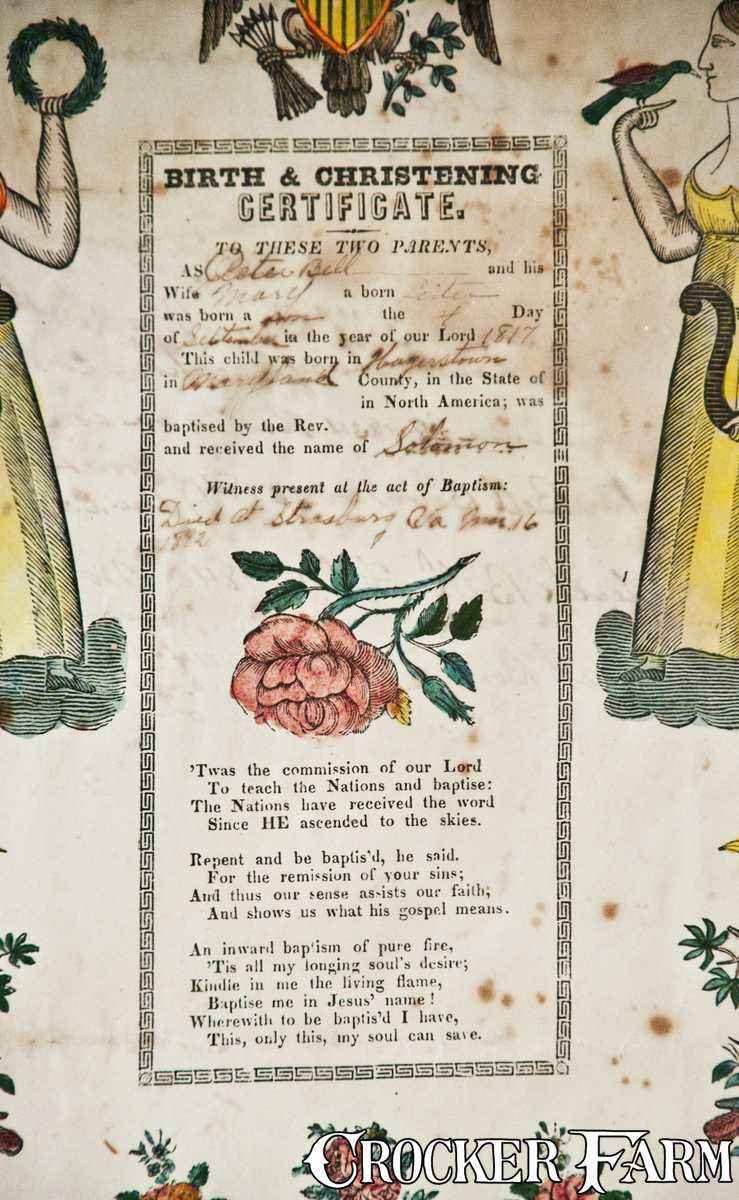 BIRTH & CHRISTENING
CERTIFICATE.
TO THESE TWO PARENTS,
AS Peter Bell and his
Wife Mary a born
was born a son the 4 Day
of September in the year of our Lord 1817
This child was born in Hagerstown
in Maryland County, in the State of
in North America; was
baptised by the Rev.
and received the name of Solomon
Witness present at the act of Baptism:
Died at Strasburg Va 16
1882
1
'Twas the commission of our Lord
To teach the Nations and baptise:
The Nations have received the word
Since HE ascended to the skies.
Repent and be baptis'd, he said.
For the remission of your sins;
And thus our sense assists our faith;
And shows us what his gospel means.
An inward baptism of pure fire,
'Tis all my longing soul's desire;
Kindle in me the living flame,
Baptise me in Jesus' name!
Wherewith to be baptis'd I have,
This, only this, my soul can save.
CROCKER FARM